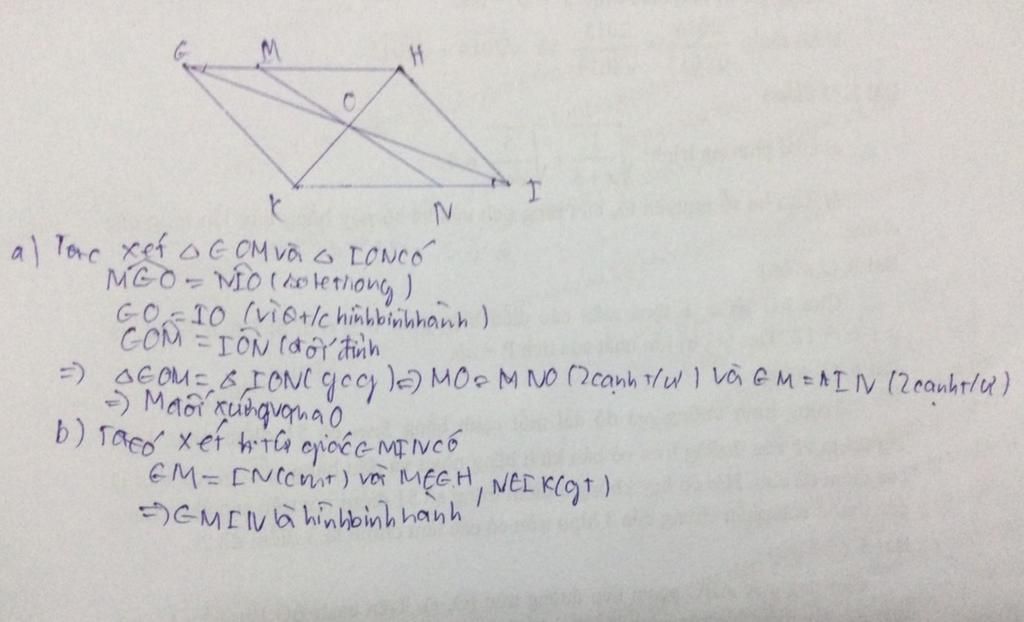 G M H
O
K N I
a) Ta có xét △ GOM và △ ION có
MGO = NIO (so le trong)
GO = IO (vì O t/c hình bình hành)
GOM = ION (đối đỉnh
=> △GOM = △ ION (gcg) => MO = NO (2 cạnh t/ư) và GM = IN (2 cạnh t/ư)
=> M đối xứng qua O
b) Ta có xét tứ giác GMIN có
GM = IN (cmt) và M∈GH, N∈IK (gt)
=> GMIN là hình bình hành